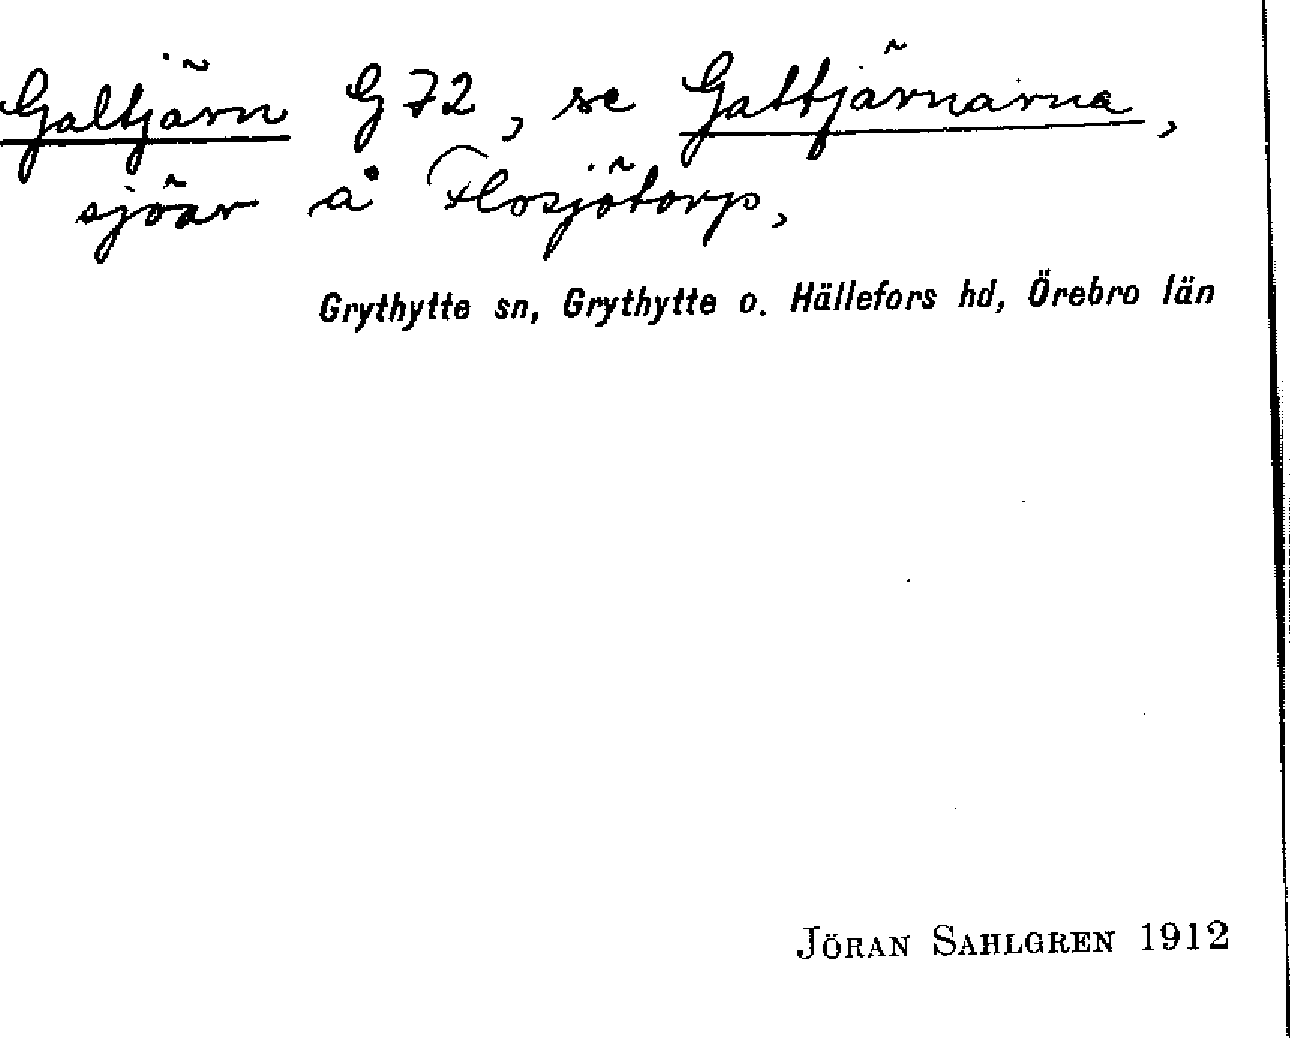 Galtjärn G 72, se Gattjärnarna,
sjöar å Flosjötorp,
Grythytte sn, Grythytte o. Hällefors hd, Örebro län
JÖRAN SAHLGREN 1912